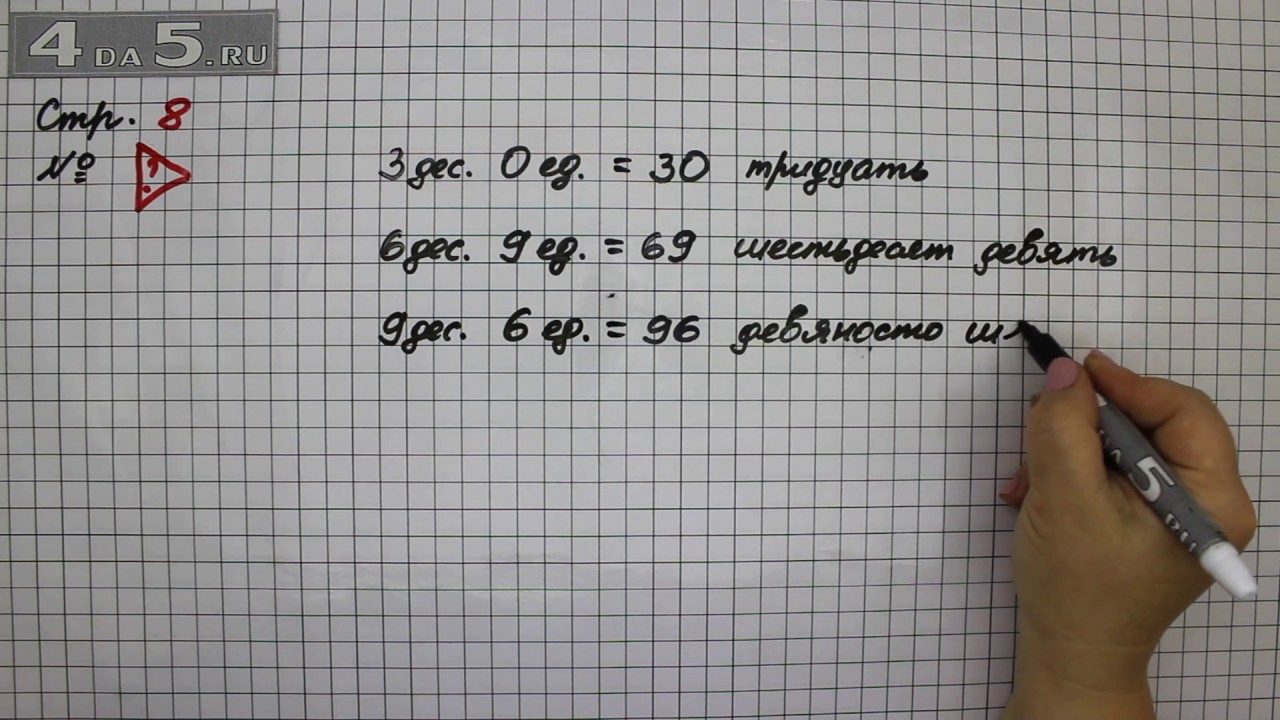 4 DA 5.RU
Стр. 8
№ ?
3 дес. 0 ед. = 30 тридцать
6 дес. 9 ед. = 69 шестьдесят девять
9 дес. 6 ед. = 96 девяносто ш
5